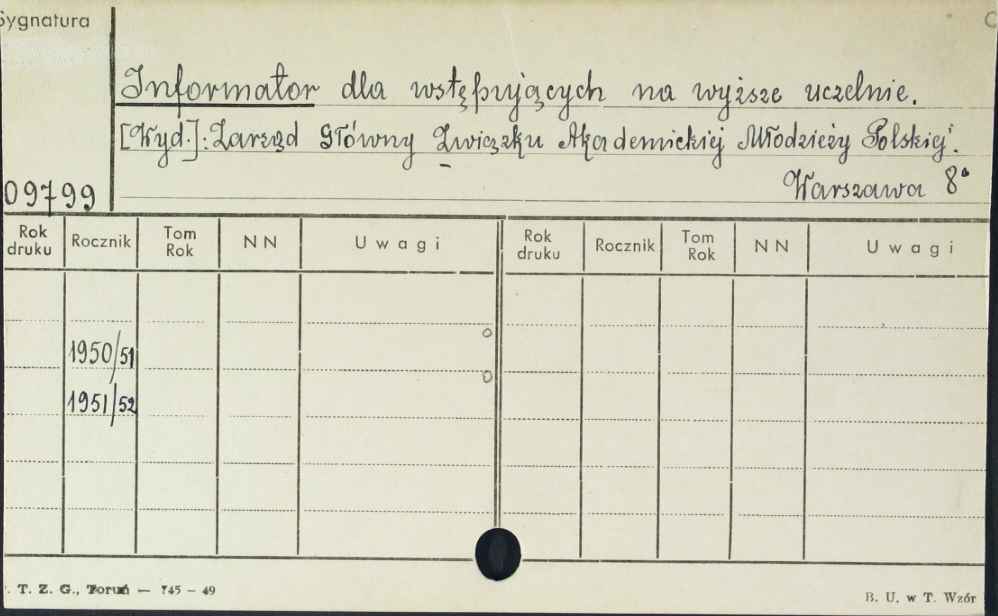 Sygnatura
Informator dla wstępujących na wyższe uczelnie.
[Wyd.]: Zarząd Główny Związku Akademickiej Młodzieży Polskiej.
Warszawa 8°
09799
Rok druku Rocznik Tom Rok NN Uwagi Rok druku Rocznik Tom Rok NN Uwagi
1950/51
1951/52
T. Z. G., Toruń — 745 - 49
B. U. w T. Wzór